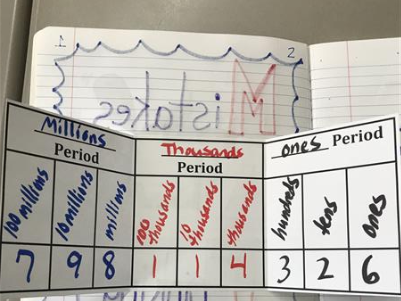 1 2
Mistakes
Millions Thousands ones Period
Period Period
100 millions 10 millions millions 100 thousands 10 thousands thousands hundreds tens ones
7 9 8 1 1 4 3 2 6